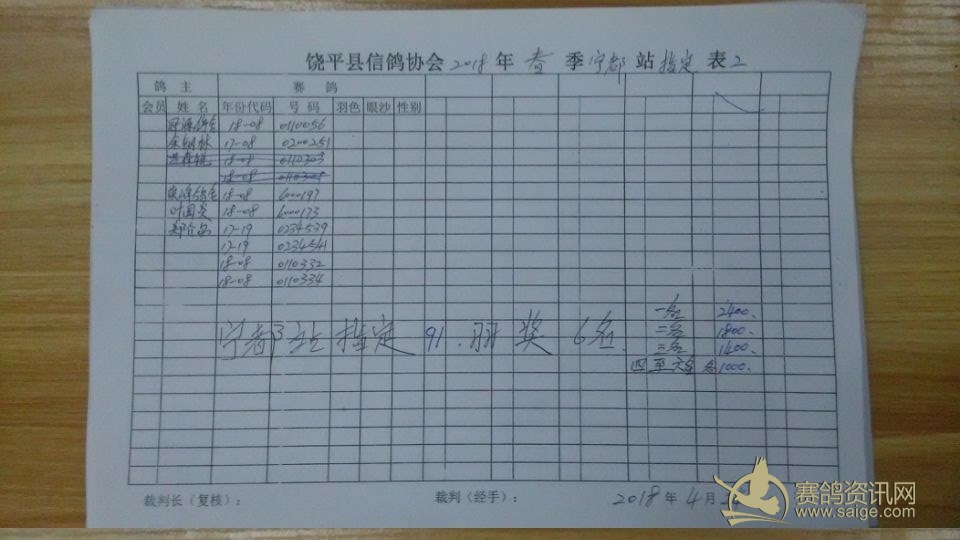 饶平县信鸽协会2018年春季宁都站指定表2
鸽 主 赛 鸽
会员 姓名 年份代码 号码 羽色 眼沙 性别
18-08 0110056
17-08 0200251
18-08 0110303
18-08 0110305
18-08 6000197
18-08 6000173
17-19 0234539
17-19 0234541
18-08 0110332
18-08 0110334
宁都站指定91羽奖6名.
一名 2400.
二名 1800.
三名 1400.
四至六名各1000.
裁判长（复核）： 裁判（经手）： 2018年4月
赛鸽资讯网
www.saige.com